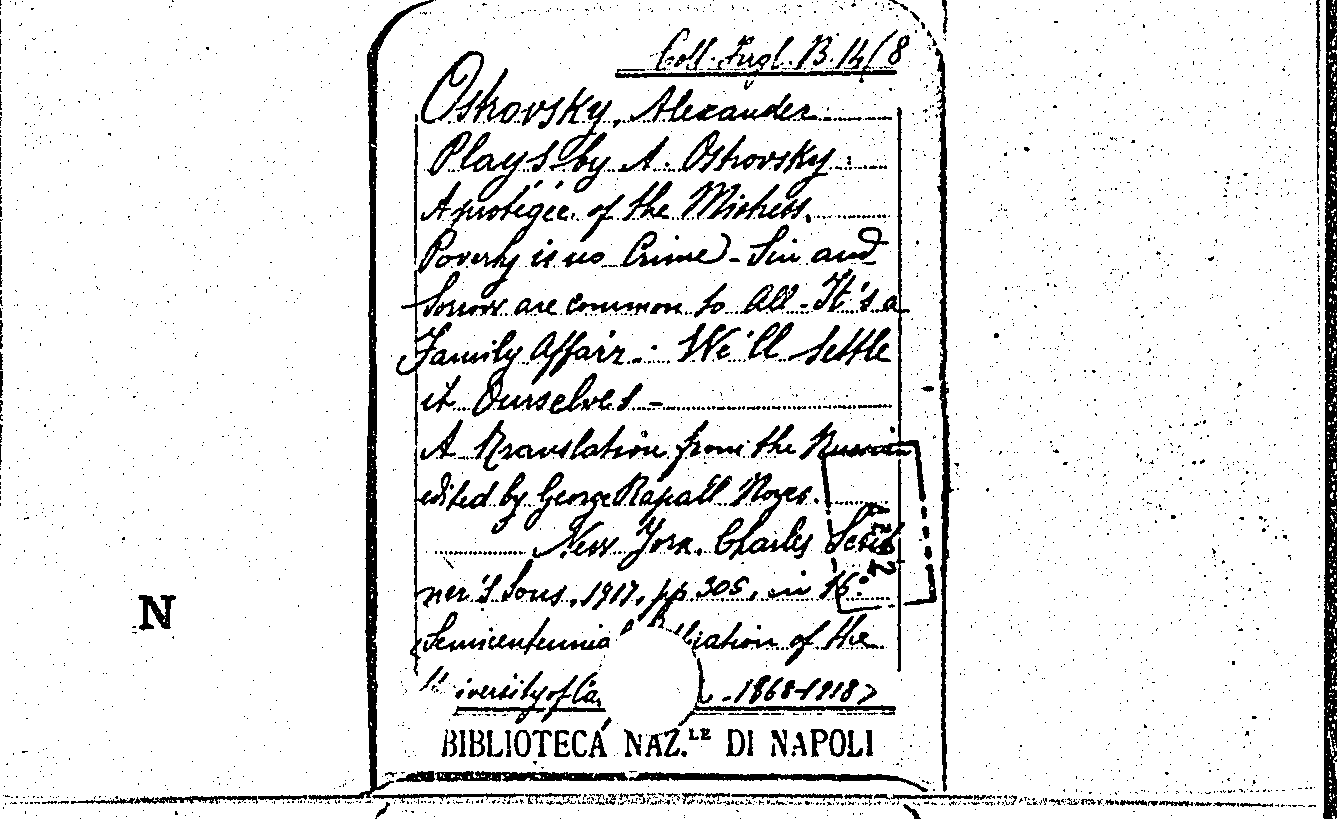 Coll. Ingl. B. 14/8
Ostrovsky, Alexander
Plays by A. Ostrovsky:
A protégée of the Mistress.
Poverty is no Crime - Sin and
Sorrow are common to All - It's a
Family Affair - We'll Settle
it Ourselves -
A translation from the Russian
edited by George Rapall Noyes.
New York, Charles Scrib
ner's Sons, 1917, pp 305, in 16°.
Semicentennial of the
of 1868-1918>
BIBLIOTECA NAZ.LE DI NAPOLI
N